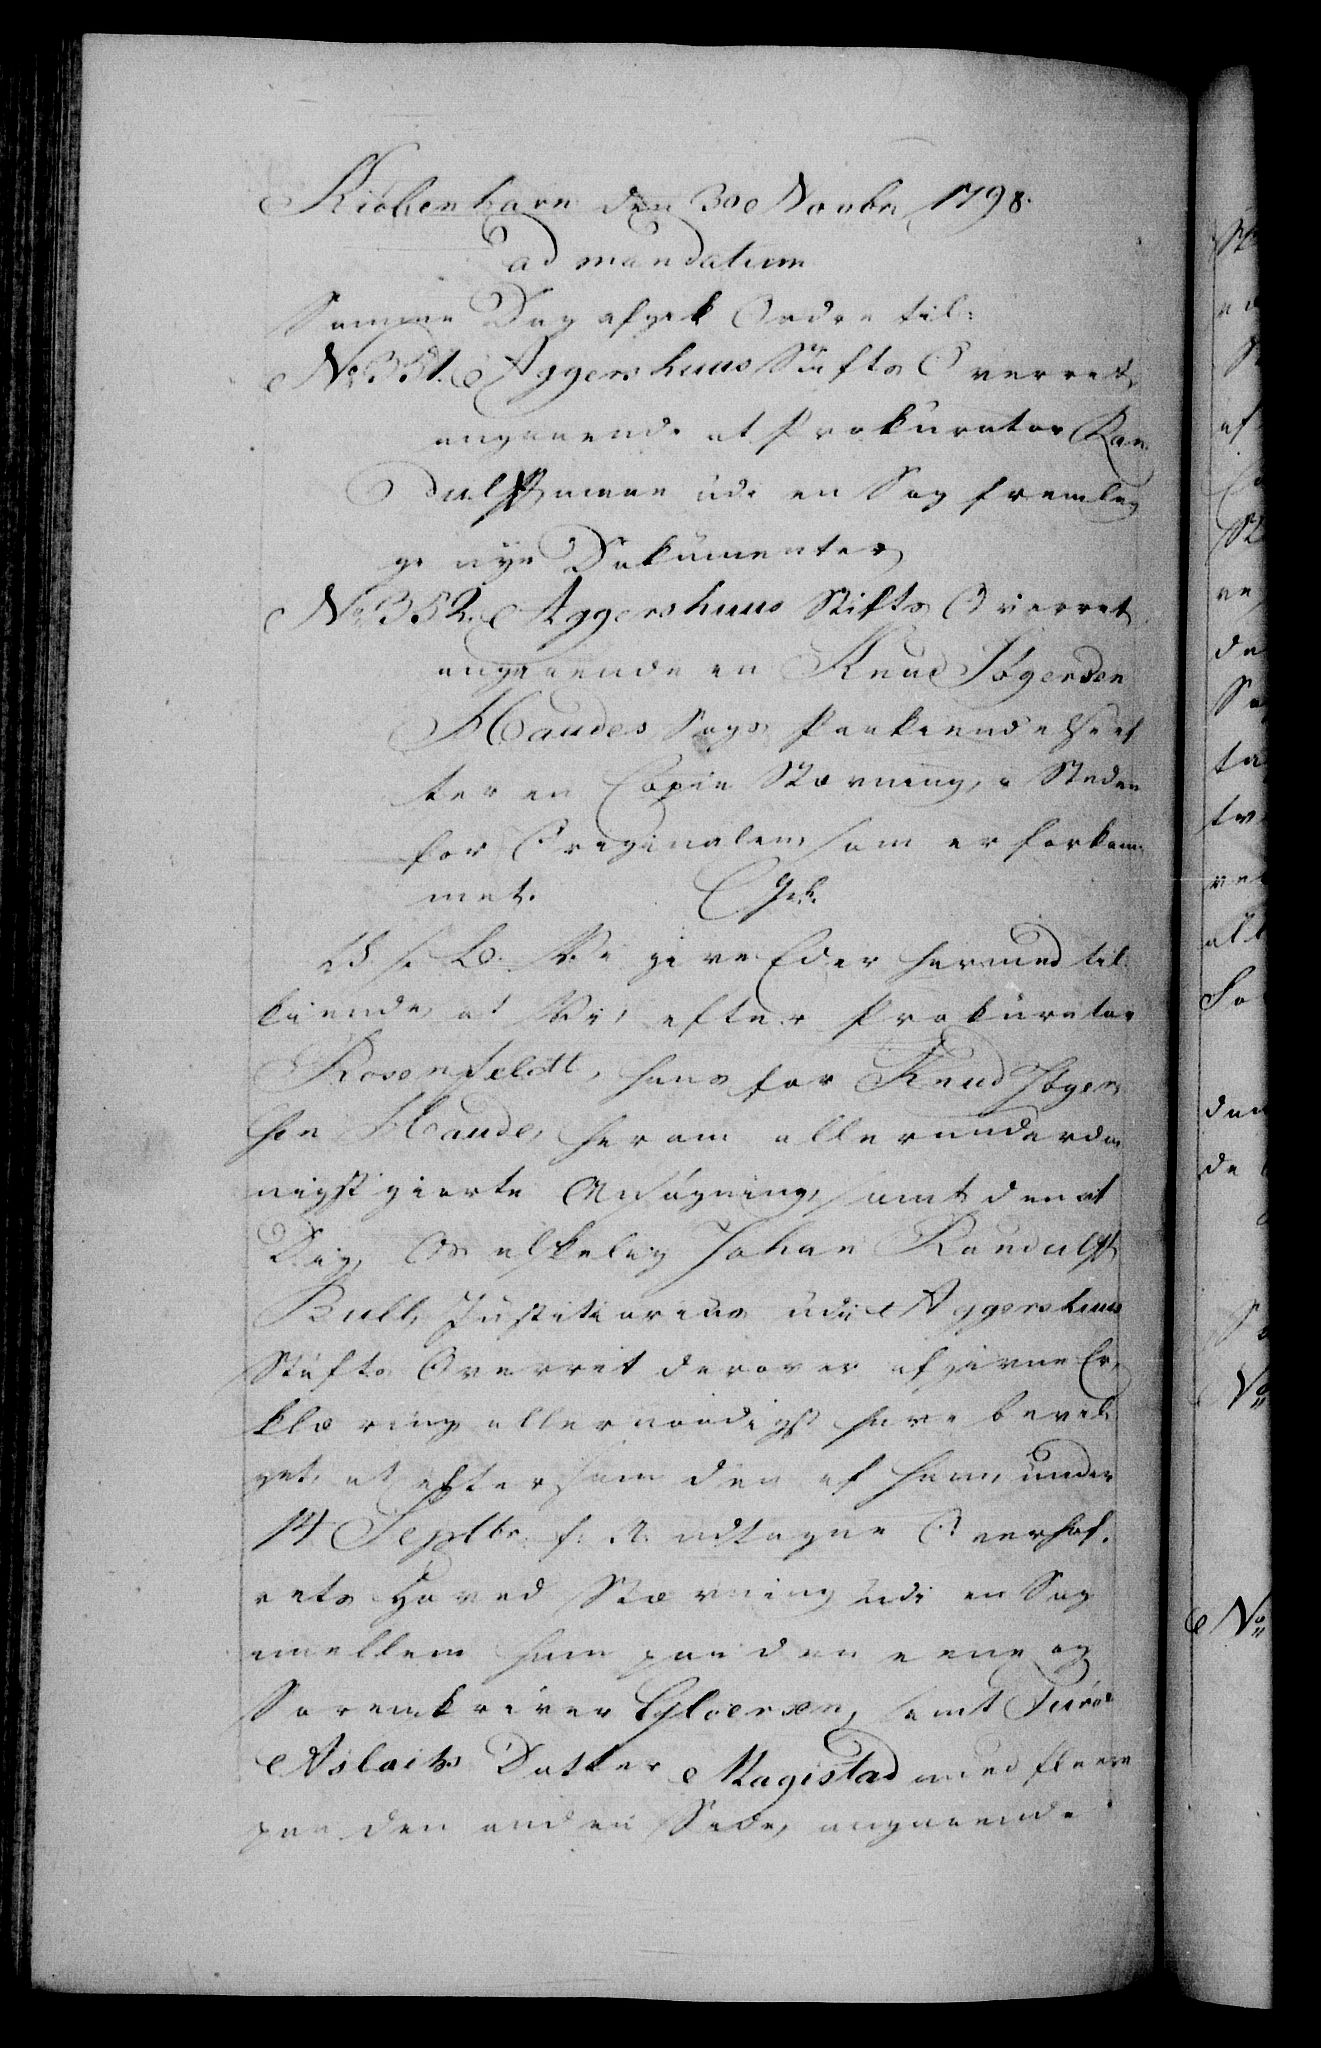 Kiøbenhavn den 30 Novbr 1798.
ad mandatum
Samme Dag afgik Ordre til:
No 351. Aggershuus Stifts Overret,
angaaende at Prokurator Ran
dulff maae udi en Sag fremleg
ge nye Dokumenter,
No 352. Aggershuus Stifts Overret
angaaende en Knud Jøgensen
Haudes Sags Paakiendelse ef
ter en Copie Stævning, i Steden
for Originalen som er forkom
met.
V: s: G: Vi give Eder hermed til
kiende, at Vi, efter Prokurator
Rosenfeldt, hans for Knud Jøgen
sen Haude, herom allerunderda
nigst giorte Ansøgning, samt den at
Dig, Os elskelig Johan Randulff
Bull, Justitiarius udi Aggershuus
Stifts Overret derover afgivne Er
klæring allernaadigst have bevil
get, at eftersom den af ham, under
14 Septbr. f: A: udtagne Overhof
rets Hoved Stævning udi en Sag
imellem ham paa den eene og
Sorenskriver Gloersen, samt Turoe
Aslachs Datter Magistad med fleere
paa den anden Side, angaaende